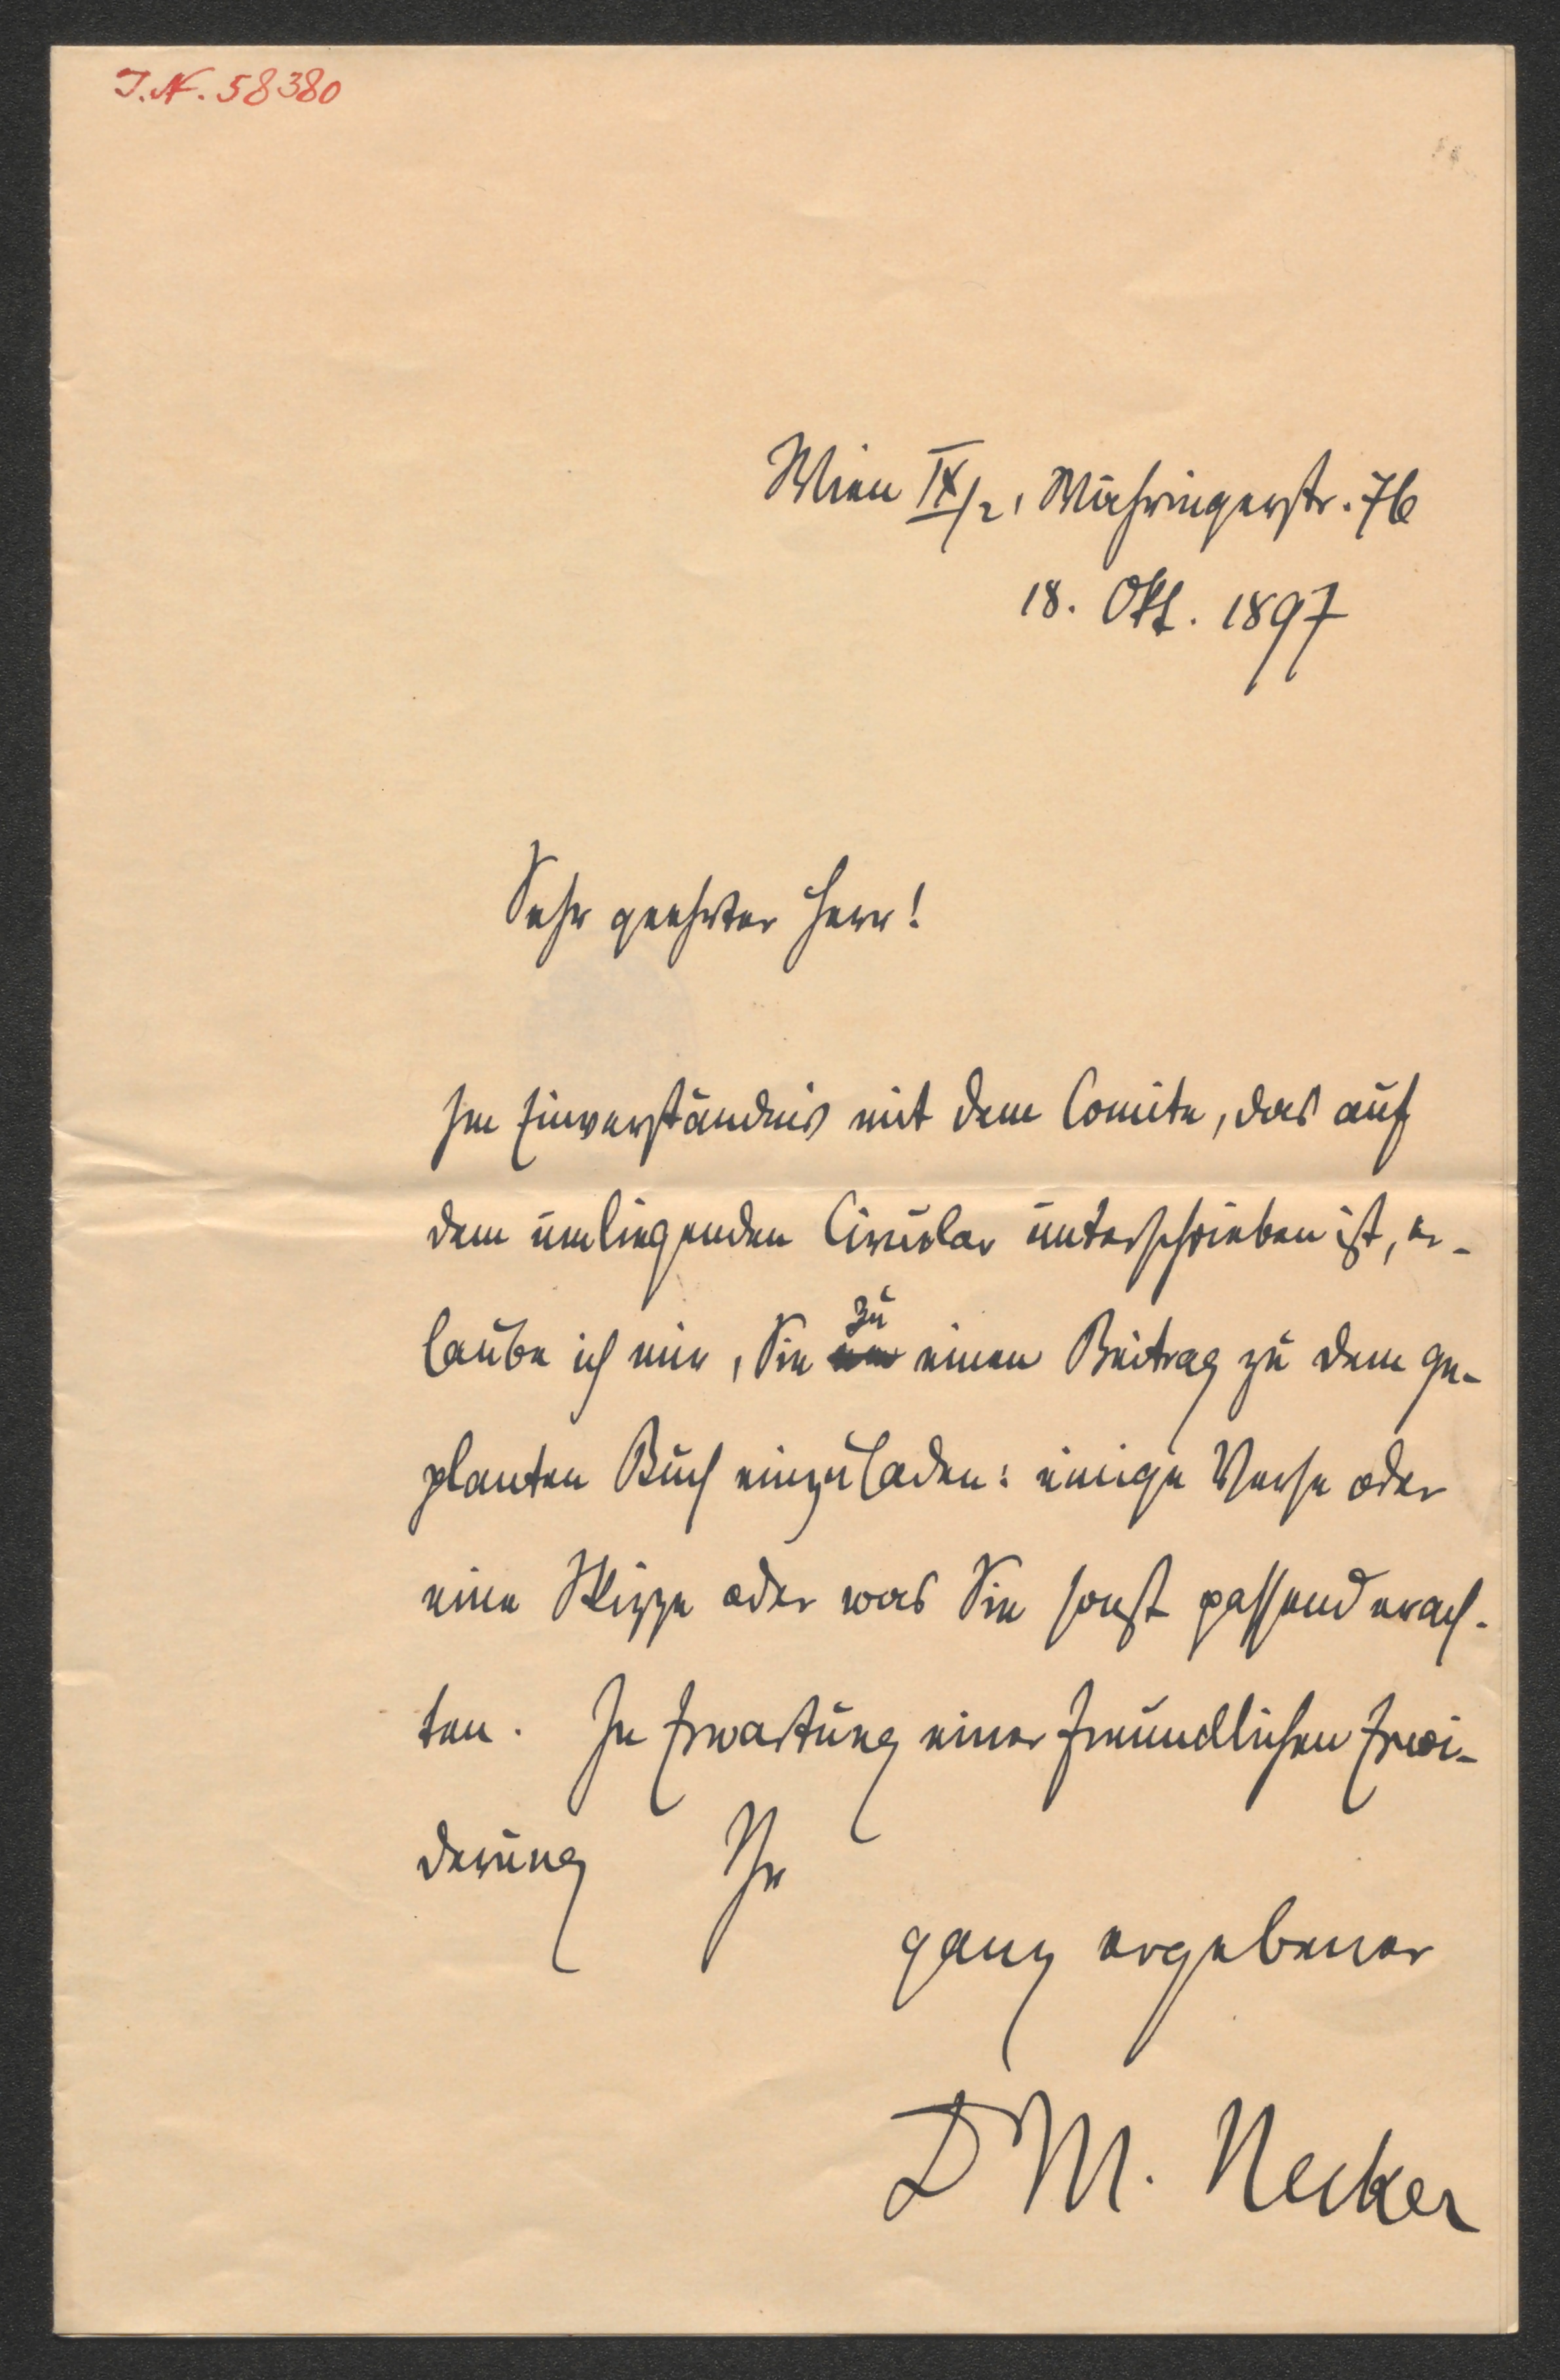 I.N. 58380
Wien IX/2, Währingerstr. 76
18. Okt. 1897
Sehr geehrter Herr!
Im Einverständnis mit dem Comite, das auf
dem umliegenden Circular unterschrieben ist, er-
laube ich mir, Sie zu einen Beitrag zu dem ge-
planten Buch einzuladen: einige Verse oder
eine Skizze oder was Sie sonst passend erach-
ten. In Erwartung einer freundlichen Erwi-
derung Ihr
ganz ergebener
Dr M. Necker